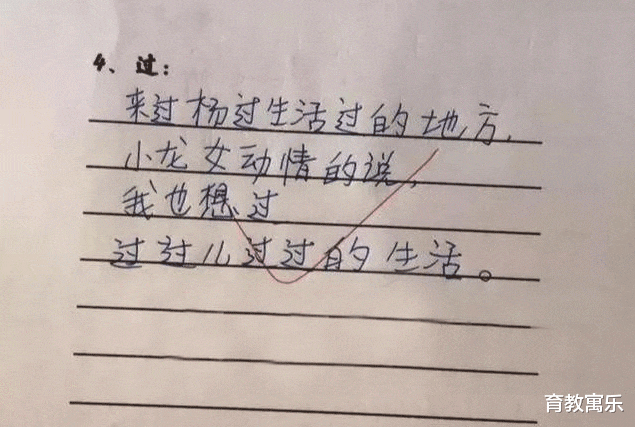 4、过：
来过杨过生活过的地方，
小龙女动情的说，
我也想过
过过儿过过的生活。
育教寓乐